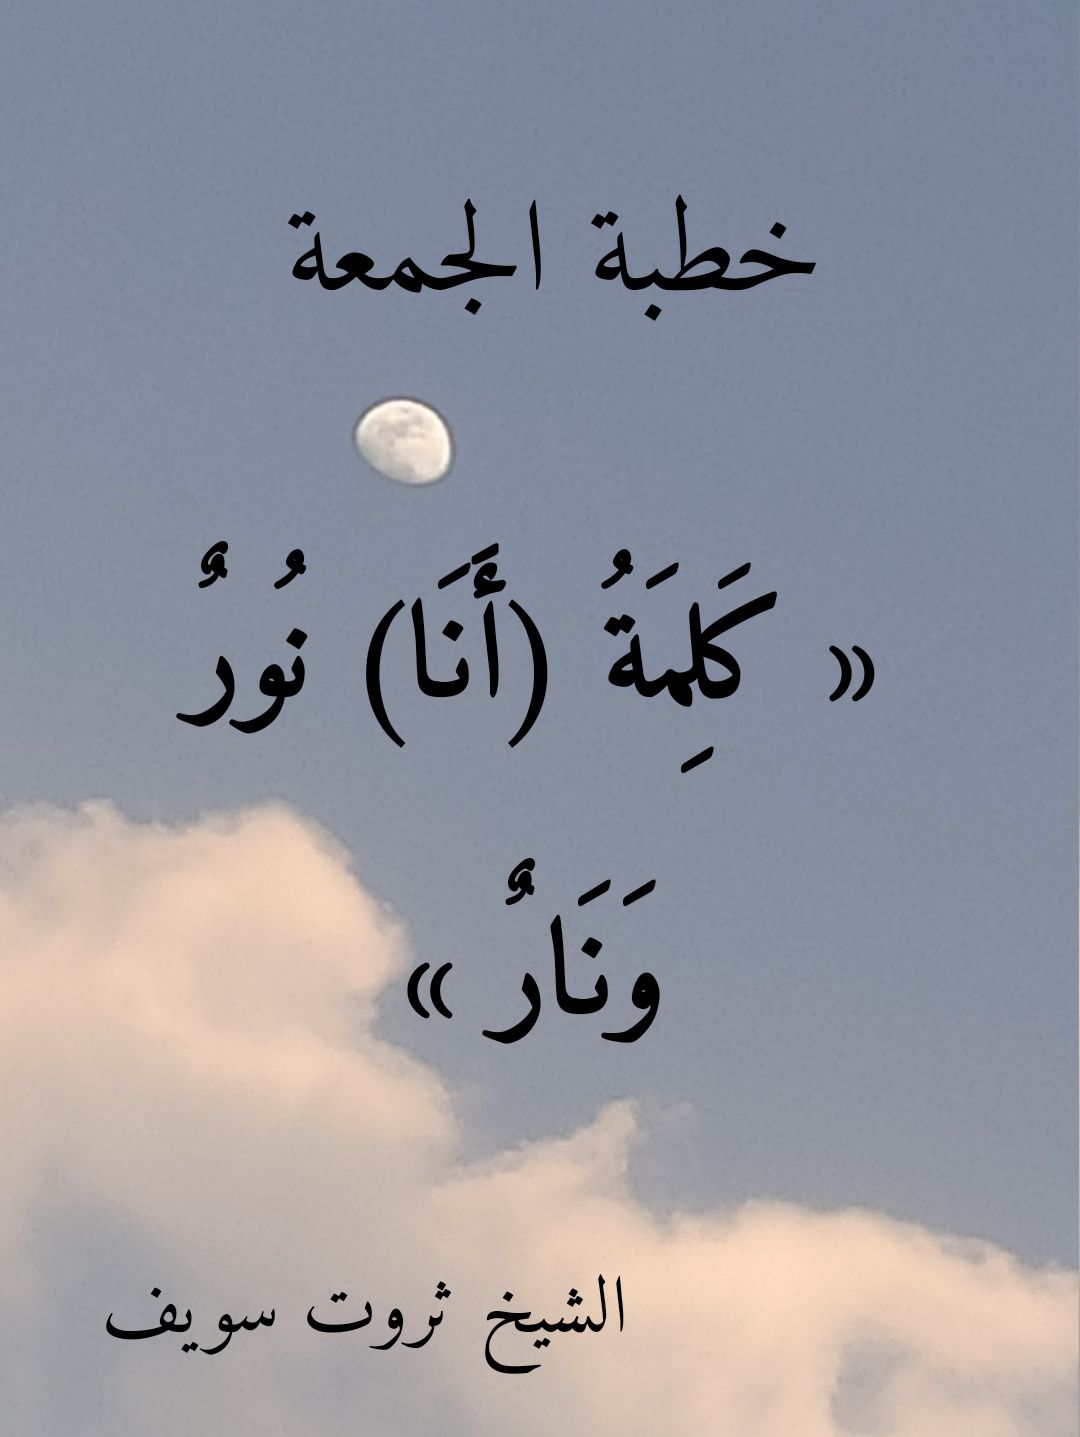 خطبة الجمعة
« كَلِمَةُ (أَنَا) نُورٌ
وَنَارٌ »
الشيخ ثروت سويف